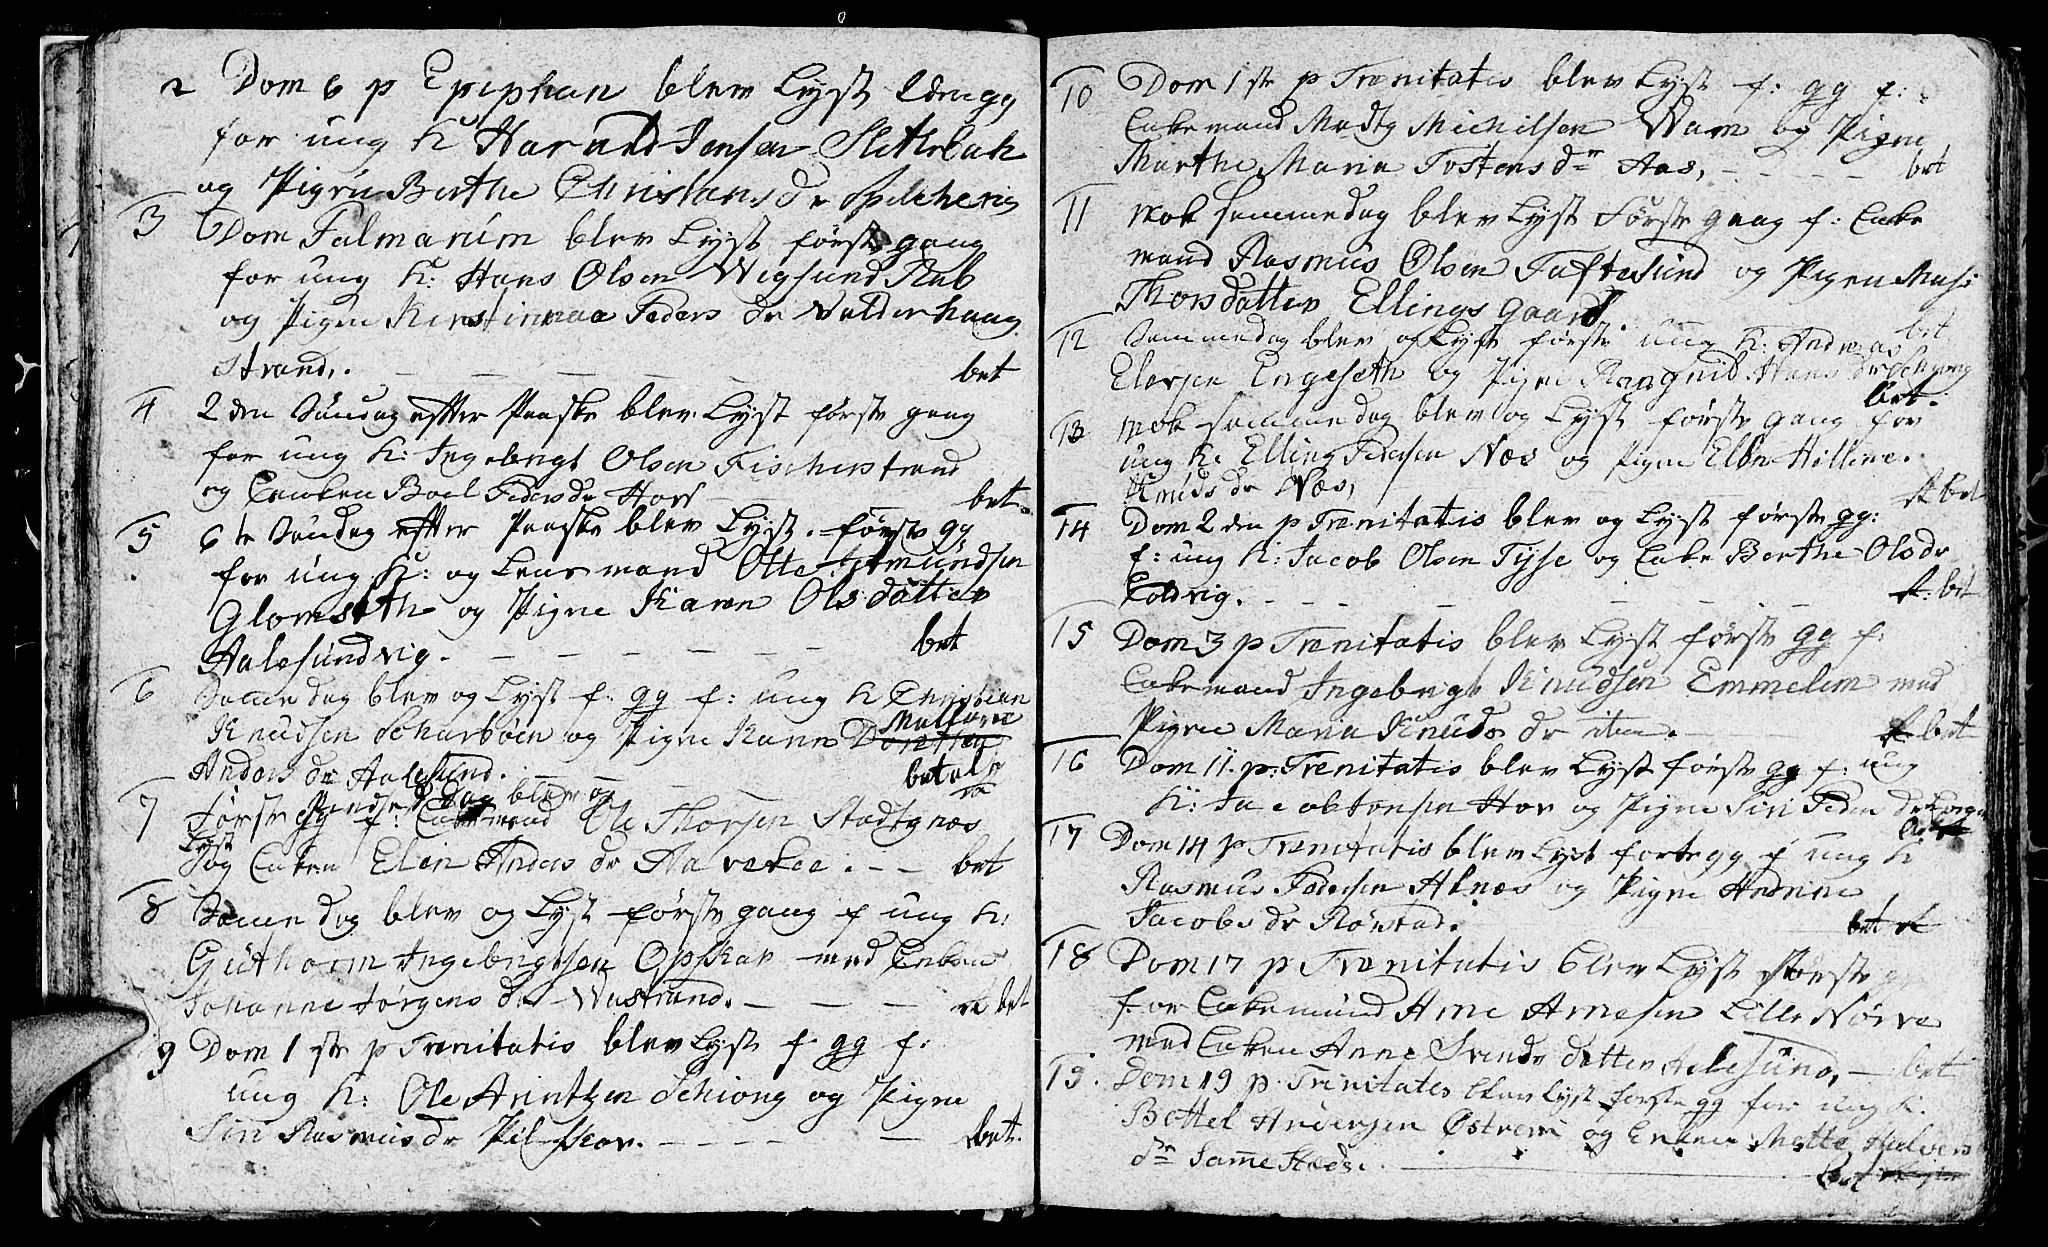 2 Dom 6 p Epiphan blev Lyst 2den gg
for ung K Harald Jensen Slettebak
og Pigen Berthe Christans dr
3 Dom Palmarum blev Lyst første gang
for ung K: Hans Olsen Wigsund
og Pigen Kirstinnaa Peders dr Walderhaug
Strand. bet
4 2den Søndag efter Paaske blev Lyst første gang
for ung K: Ingebrigt Olsen Fischerstrand
og Enken Boel Peders dr Hof bet
5 6te Søndag efter Paaske blev Lyst første gg
for ung K: og Lensmand Otte Amundsen
Glomseth og Pigen Karen Ols datter
Aalesundvig. bet
6 Samme dag blev og Lyst f: gg f: ung K Christian
Knudsen Scharbøen og Pigen Karen
Anders dr Aalesund. betalt
7 Første Pindsedag blev og
Lyst første gg f: Enkemand Ole Thorsen Stadtgnæs
og Enken Elen Anders dr bet
8 Samme dag blev og Lyst første gang f ung K:
Guthorm Ingebrigtsen Opskar med Enken
Johanne Jørgens dr bet
9 Dom 1ste p Trenitatis blev Lyst f gg f:
ung K: Ole Arintzen Schiong og Pigen
Siri Rasmus dr Pilskov. bet.
10 Dom 1ste p Trenitatis blev Lyst f: gg f:
Enkemand Madtz Michelsen Wam og Pigen
Marthe Maria Tostens dr Aas, bet
11 Nok sammedag blev Lyst Første gaag f: Enke
mand Rasmus Olsen Taftesund og Pigen
Thorsdatter Ellings gaard. bet
12 Sammedag blev og Lyst første ung K: Andreas
Elersen Engeseth og Pigen Rangnild Hans dr Schiong
bet.
13 Nok sammedag blev og Lyst første gang for
ung K: Elling Pedersen Næs og Pigen Ellen Hellene
Knuds dr Næs, bet
14 Dom 2den p Trenitatis blev og Lyst første gg:
f: ung K: Jacob Olsen Tysse og Enke Berthe Ols dr
Coldvig. bet
15 Dom 3 p Trenitatis blev Lyst første gg f:
Enkemand Ingebrigt Knudsen Emmelem med
Pigen Maria Knuds dr item. bet
16 Dom 11. p: Trenitatis blev Lyst første gg f: ung
K: Jacob Jonsen Hov og Pigen Siri Peder dr
17 Dom 14 p Trenitatis blev Lyst førte gg f ung K
Rasmus Pedersen Alnæs og Pigen Andrine
Jacobs dr Rørstad. bet
18 Dom 17 p Trenitatis blev Lyst første
for Enkemand Arne Arnesen Lille Nørve
med Enken Anne Svends datter Aalesund, bet
19. Dom 19 p. Trenitates blev Lyst første gg for ung K.
Bottel Andersen Østrem og Enken Mette Halvors
dr Samme Stæds.